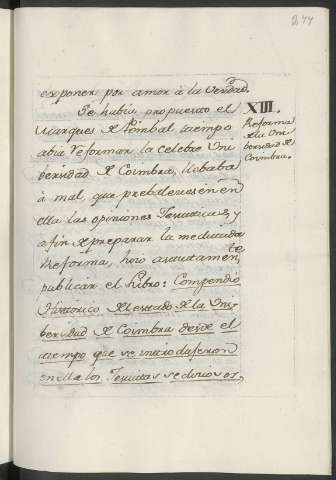 244
exponer por amor à la Verdad.
Se habia propuesto el
Marques de Pombal tiempo
abia reformar la celebre Uni
bersidad de Coimbra, llebaba
à mal, que prebaleciesen en
ella las opiniones Jesuiticas, y
a fin de preparar la meditada
Reforma, hizo astutamente
publicar el libro: Compendio
Historico del estado de la Uni
bersidad de Coimbra desde el
tiempo que se introduxeron
en ella los Jesuitas sediciosos,
XIII.
Reforma
de la Uni
bersidad de
Coimbra.